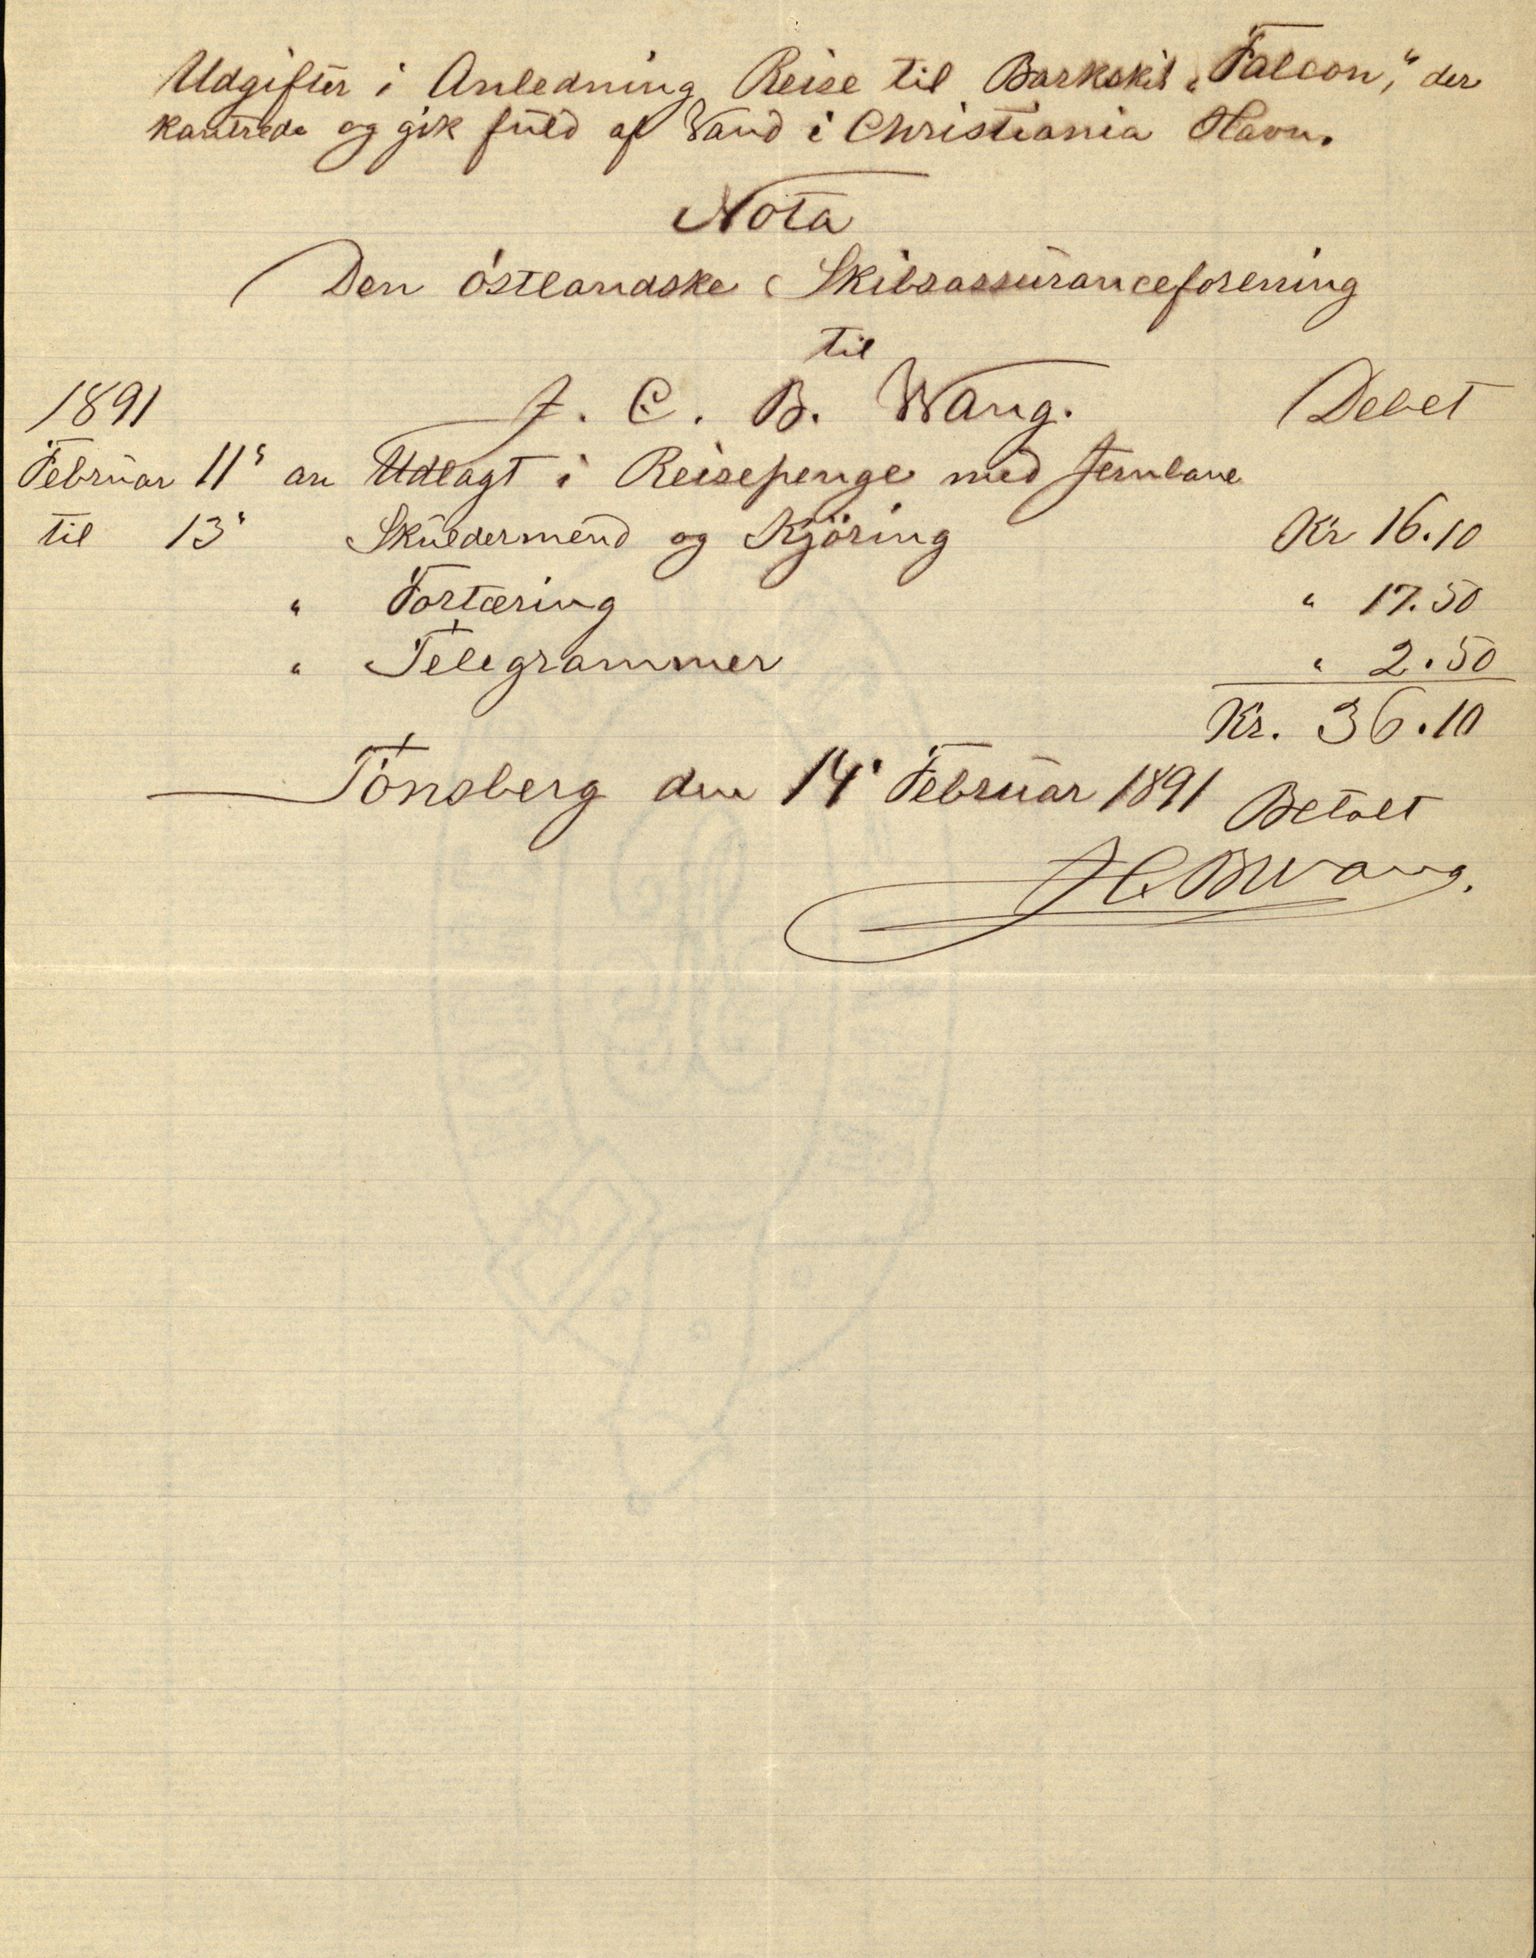 Udgifter i Anledning Reise til Barkskib „Falcon,“ der
kantrede og gik fuld af Vand i Christiania Havn.
Nota
Den östlandske Skibsassuranceforening
til
1891 J. C. B. Wang. Debet
Februar 11' an Udlagt i Reisepenge med Jernbane
til 13' og Kjöring Kr 16.10
" Fortæring " 17.50
" Telegrammer " 2.50
Kr. 36.10
Tönsberg den 14' Februar 1891 Betalt
JCBWang.